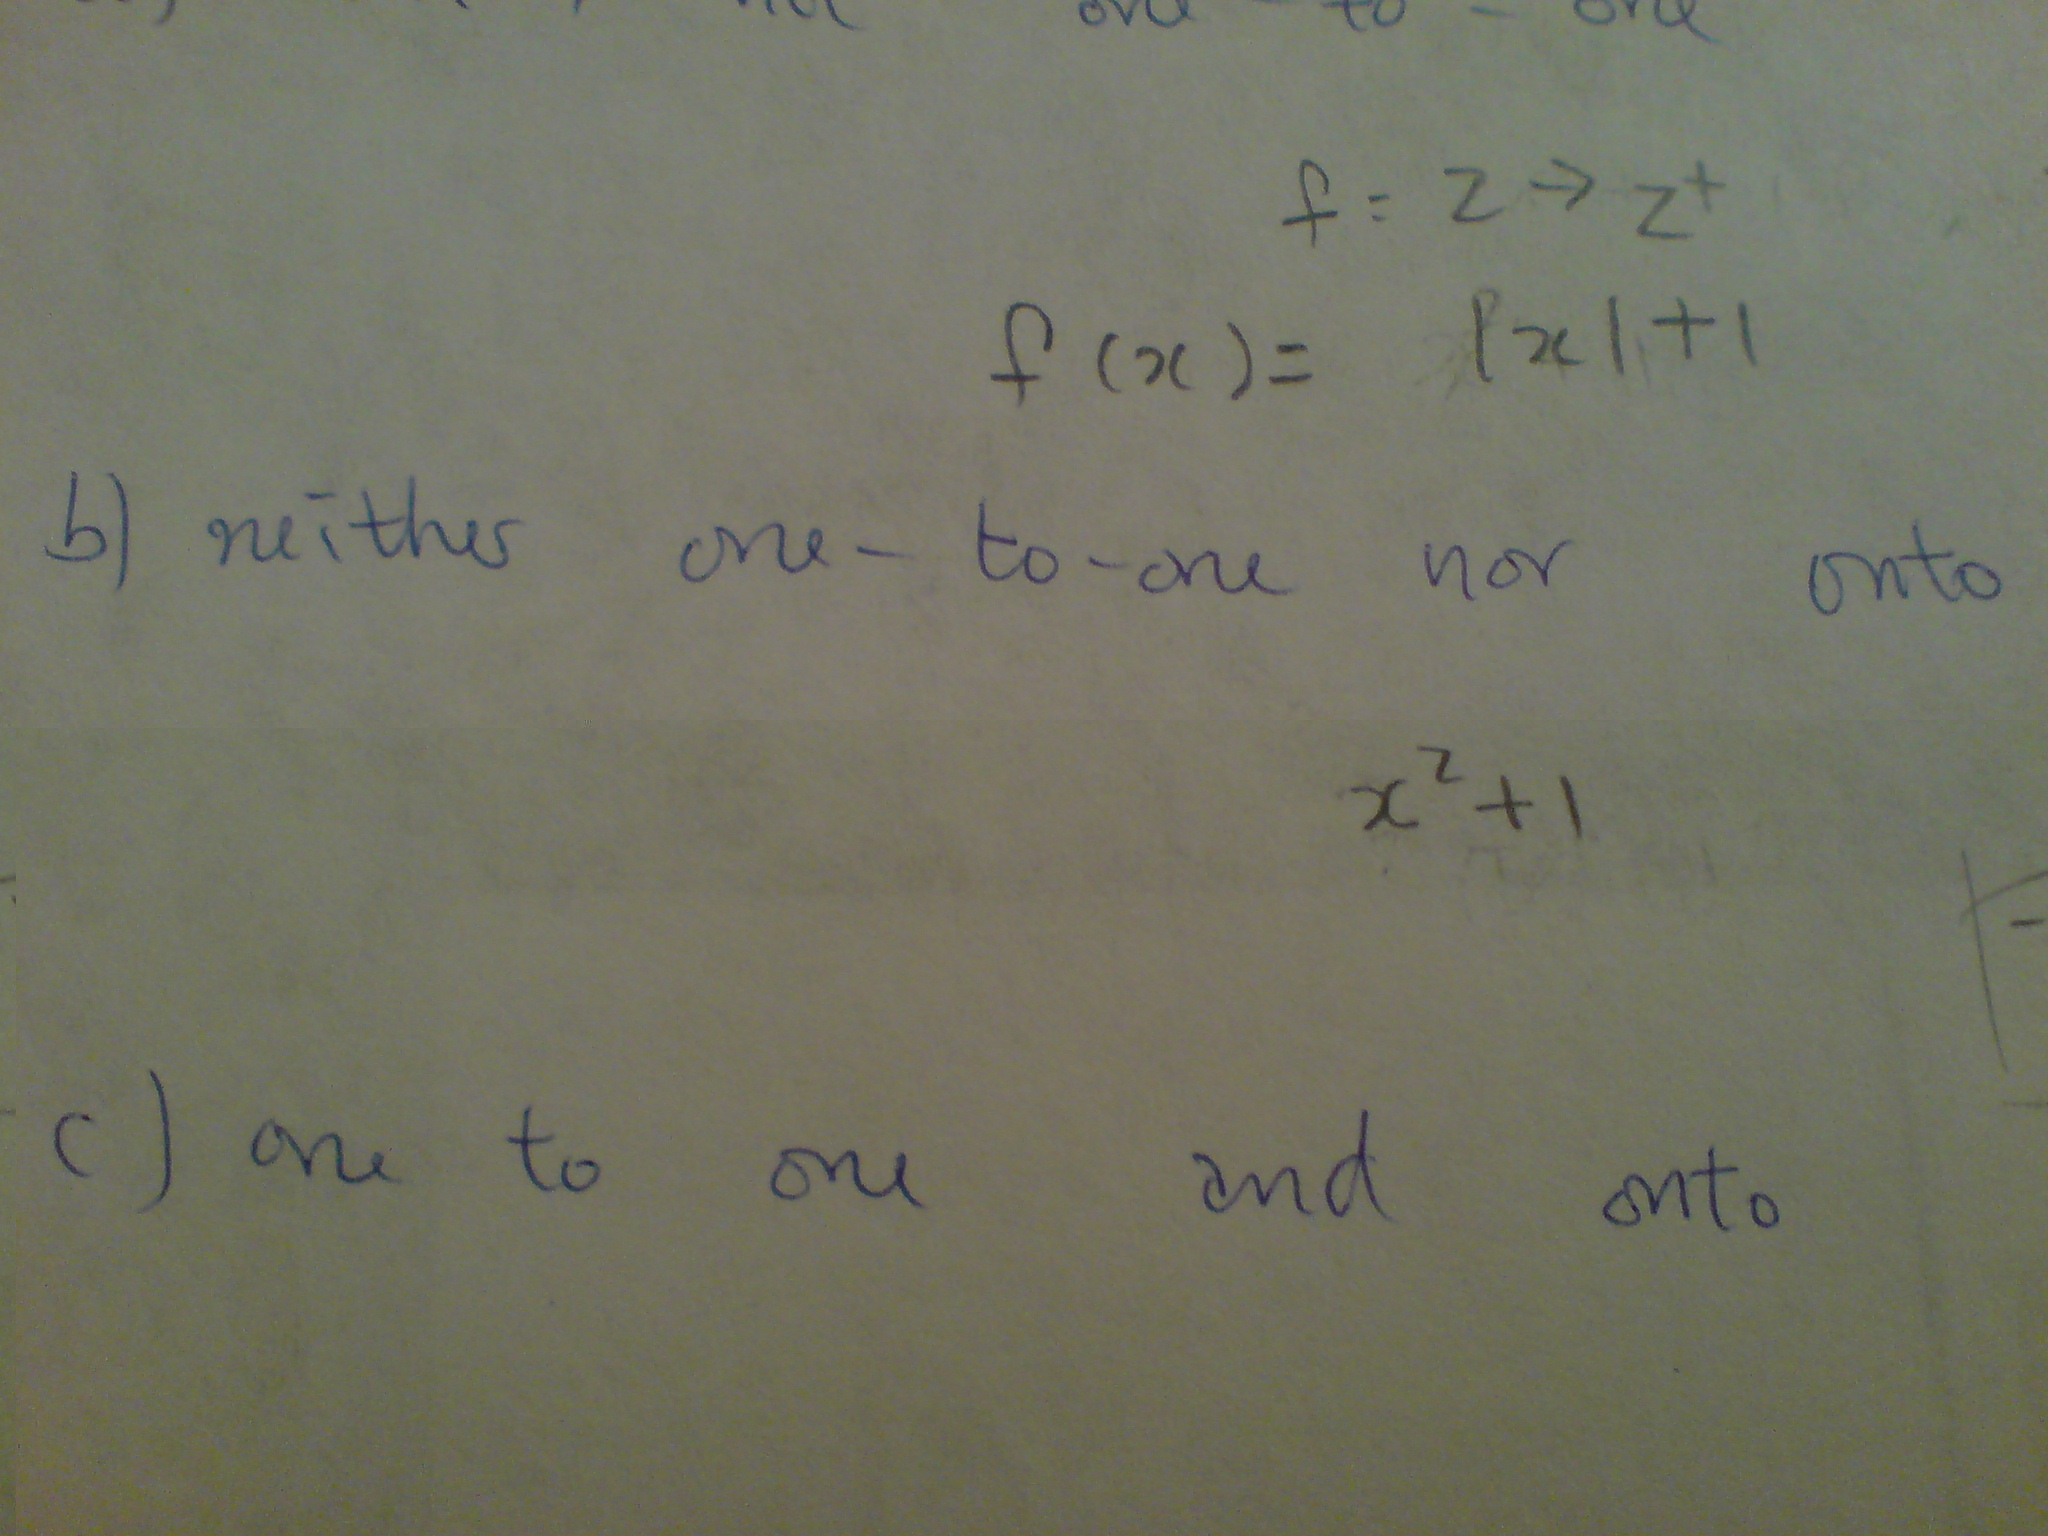 not one - to - one
f = Z → Z⁺
f (x) = |x| + 1
b) neither one - to - one nor onto
x² + 1
c) one to one and onto